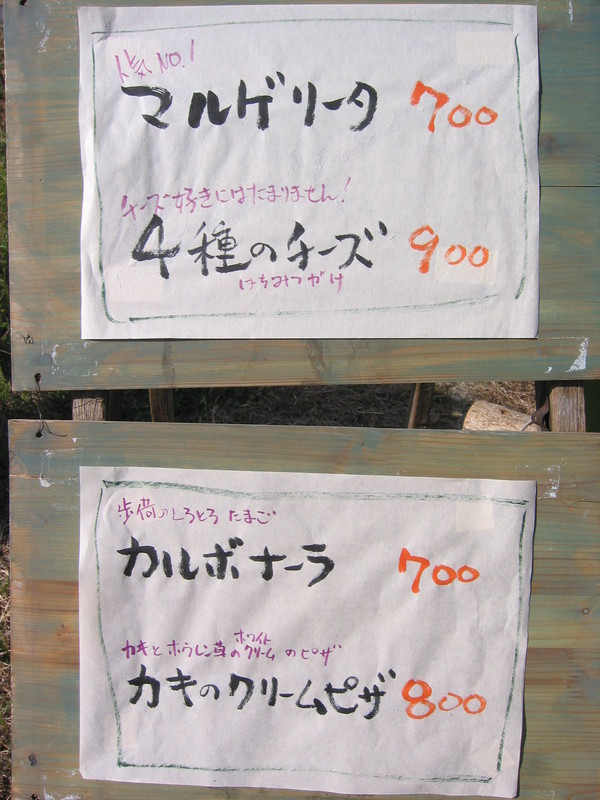 人気 NO.1
マルゲリータ 700
チーズ好きにはたまりません!
4種のチーズ 900
はちみつがけ
歩荷のとろとろ たまご
カルボナーラ 700
カキとホウレン草のホワイトクリームのピザ
カキのクリームピザ 800